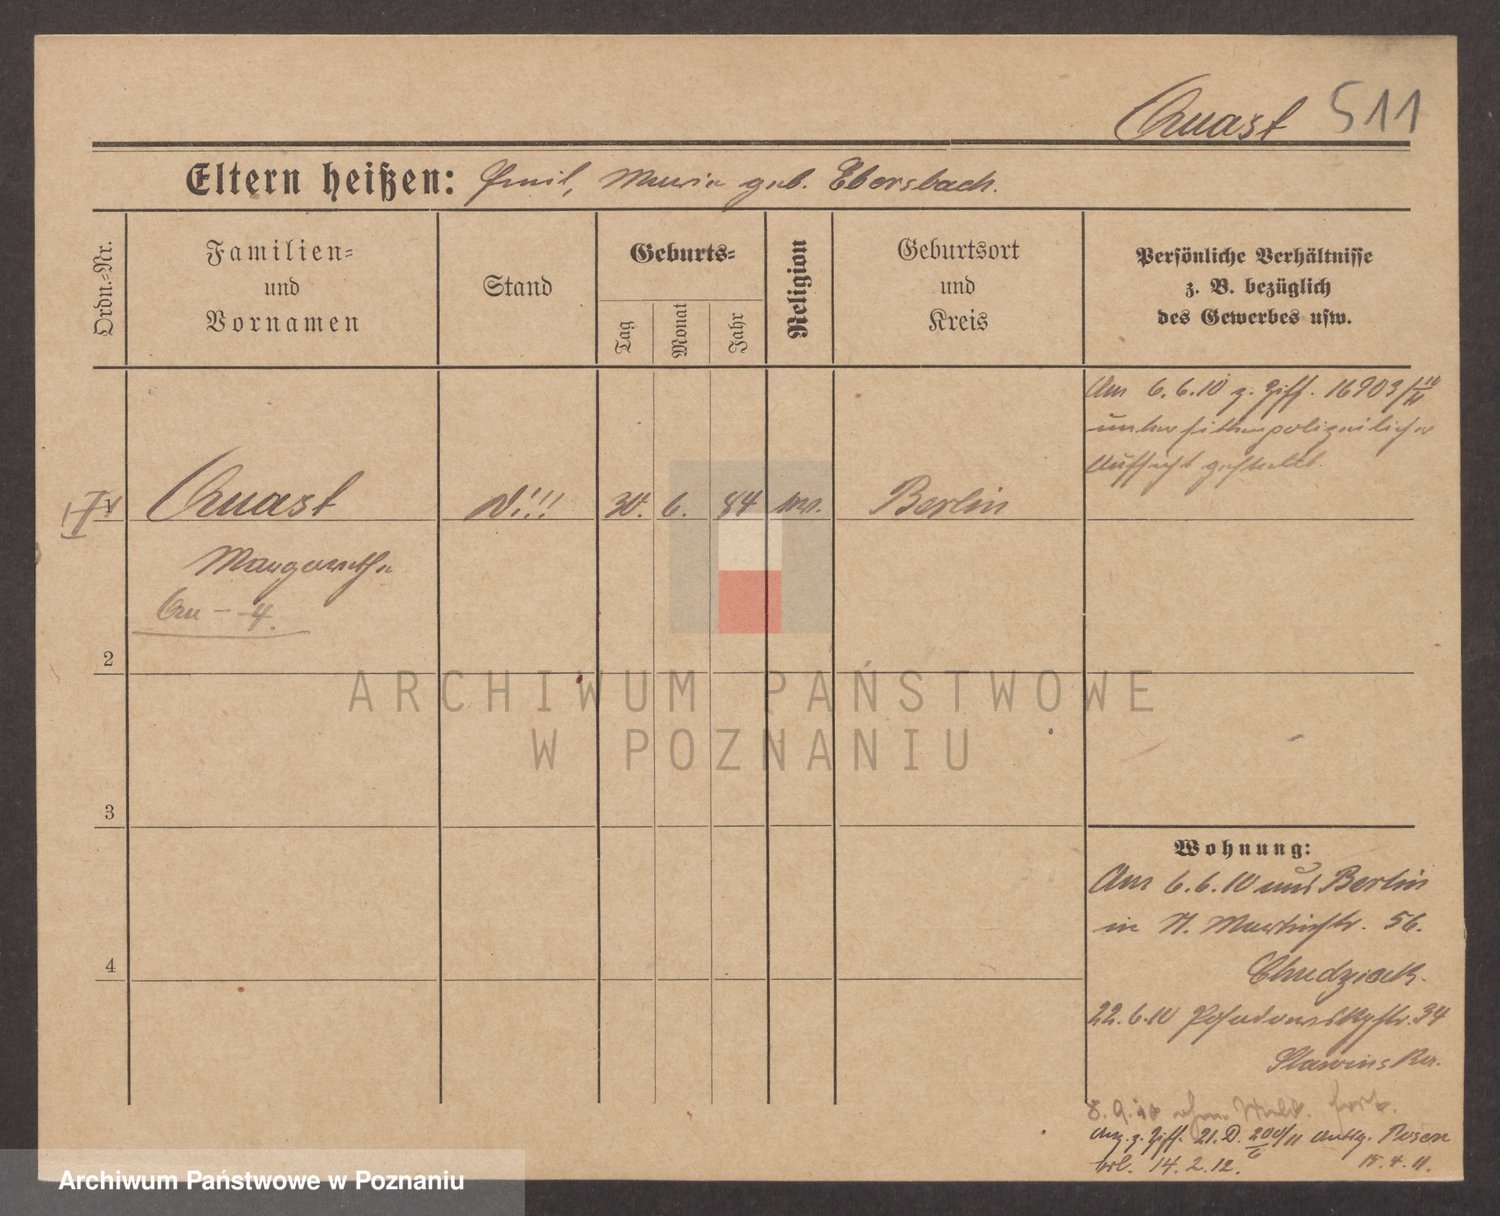 Quast 511
Eltern heißen: Emil, Maria geb. Ebersbach.
Ordn.-Nr.
Familien-
und
Vornamen
Stand
Geburts-
Tag
Monat
Jahr
Religion
Geburtsort
und
Kreis
Persönliche Verhältnisse
z. B. bezüglich
des Gewerbes usw.
Am 6.6.10 z. Ziff. 16903/
unter sittenpolizeiliche
Aufsicht gestellt.
1 Quast 30. 6. 84 Berlin
Margarethe
2
3
4
Wohnung:
Am 6.6.10 aus Berlin
in St. Martinstr. 56.
Chudziak.
22.6.10 Posadowskystr. 34
Slawinska.
8.9.10 fort.
z. Ziff. 21. D. Posen
14.2.12. 15.4.11.
ARCHIWUM PAŃSTWOWE
W POZNANIU
Archiwum Państwowe w Poznaniu